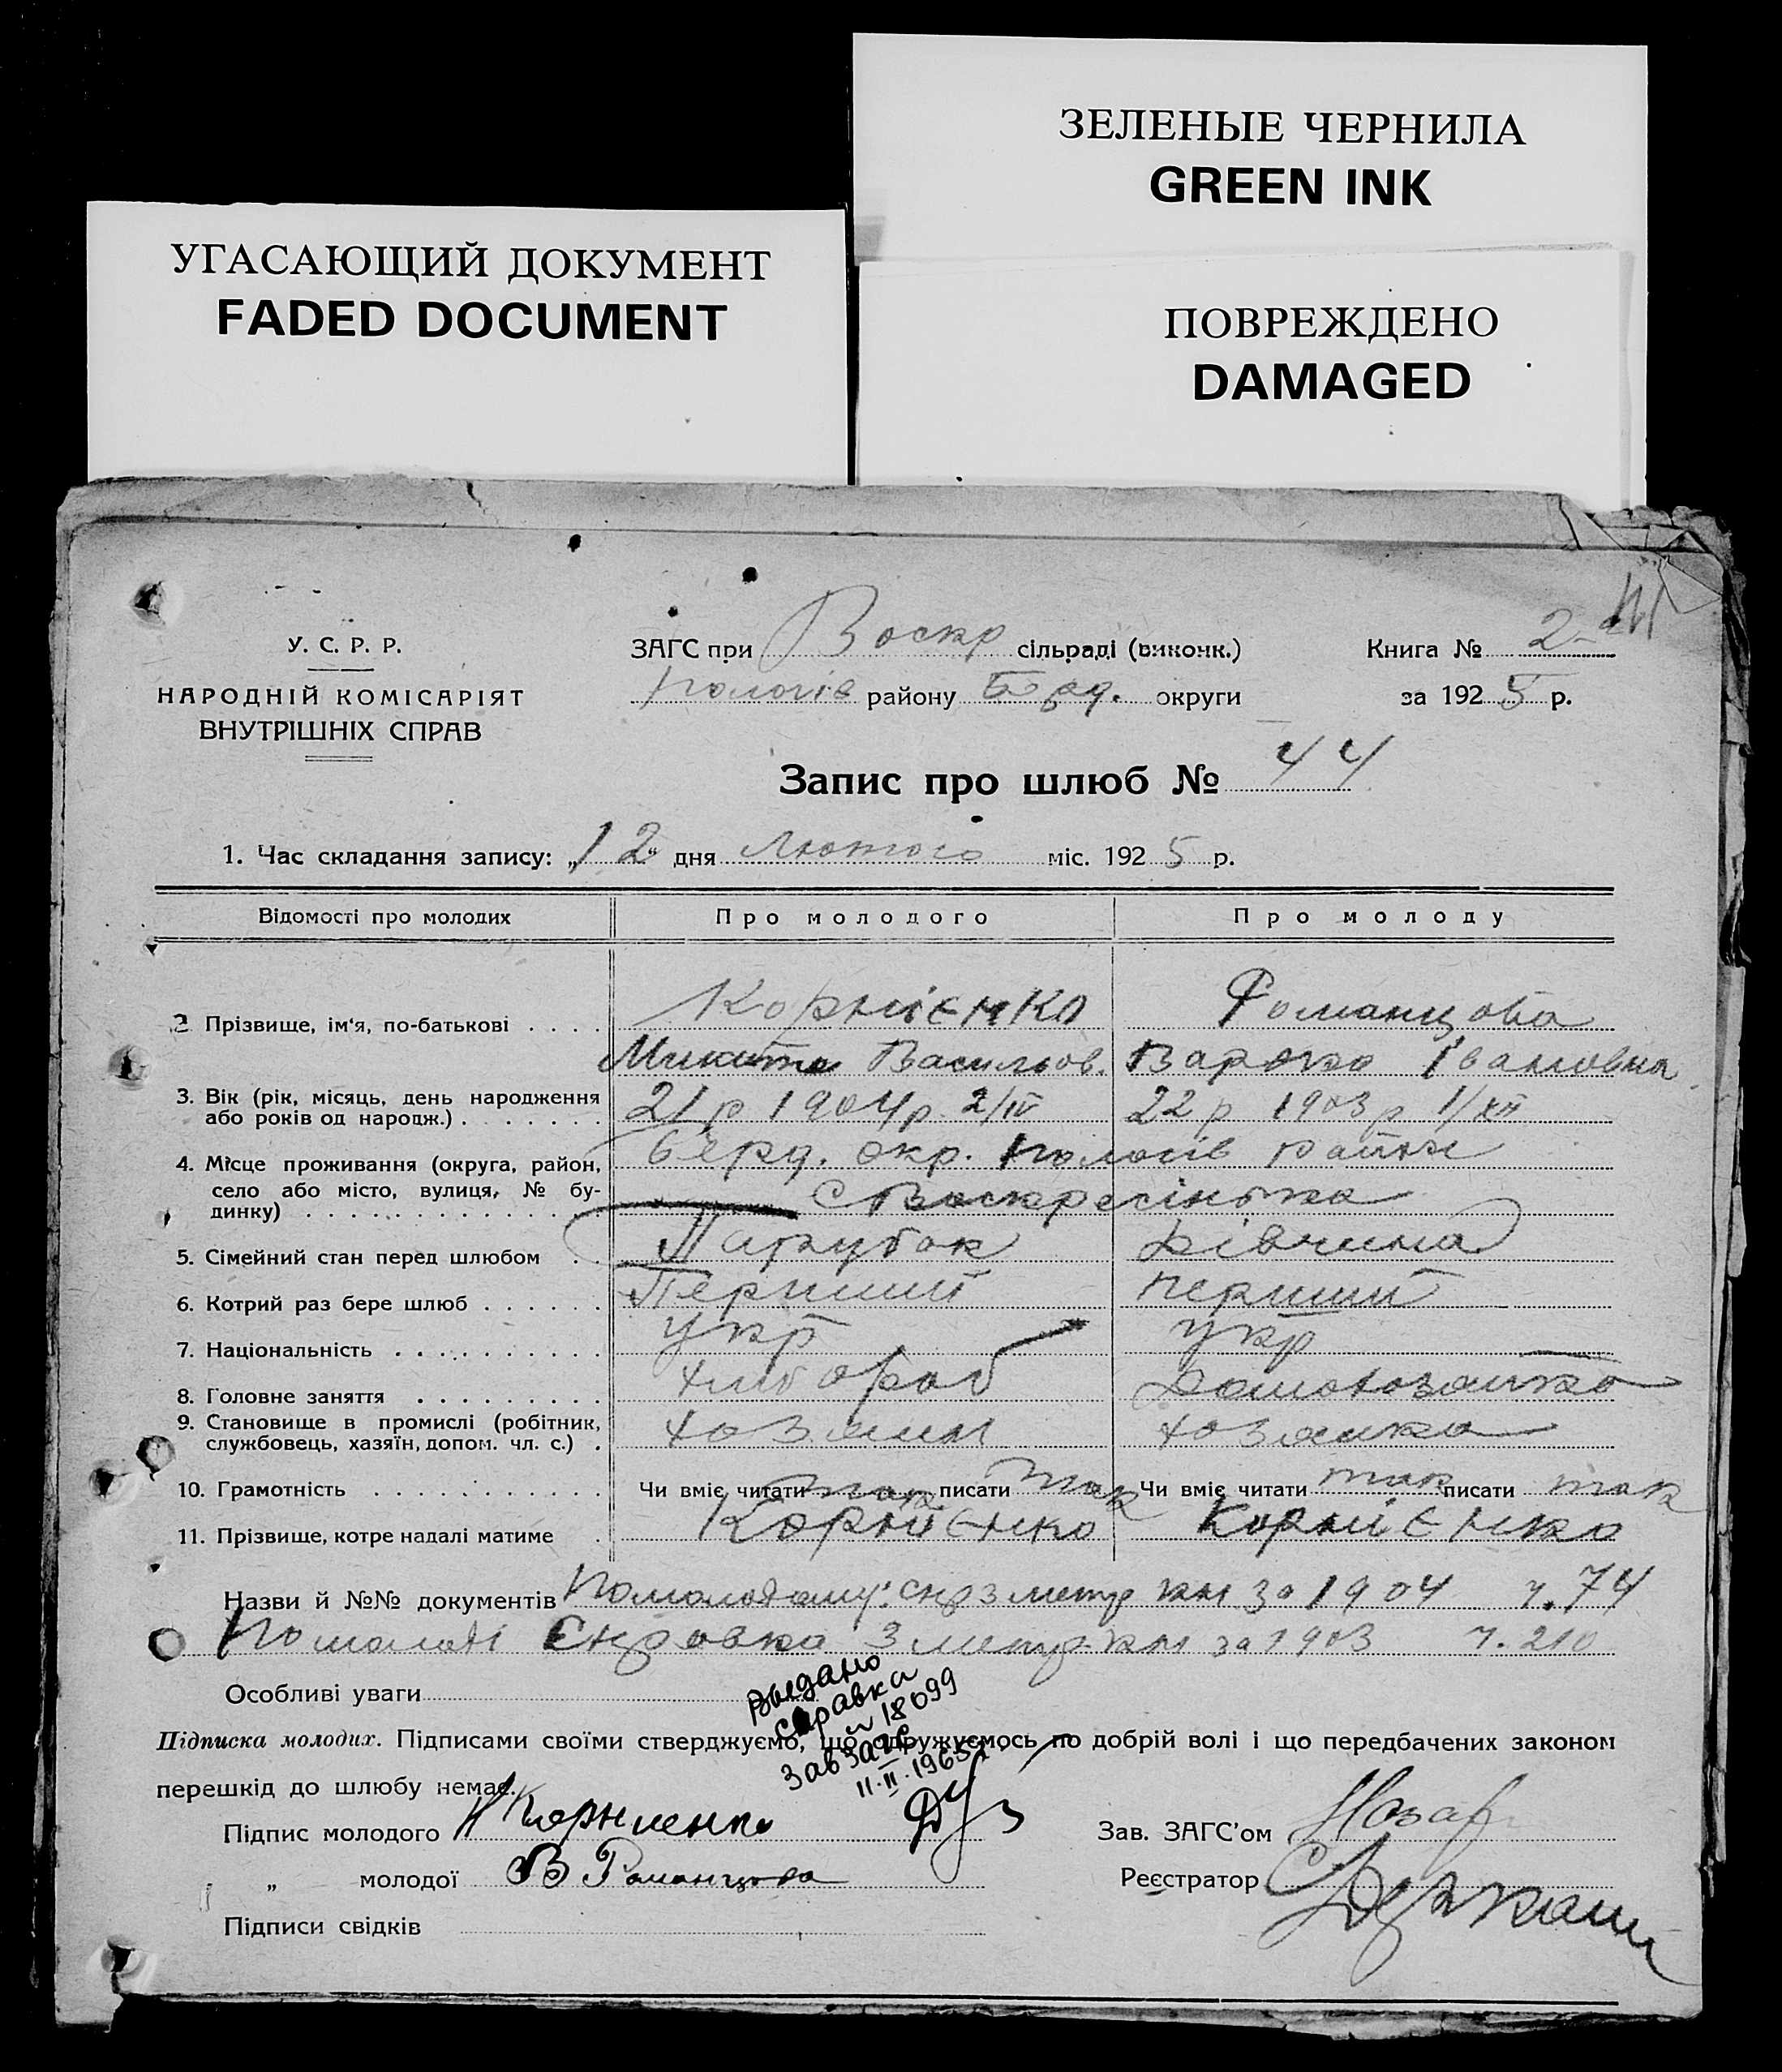 ЗЕЛЕНЫЕ ЧЕРНИЛА
GREEN INK
УГАСАЮЩИЙ ДОКУМЕНТ
FADED DOCUMENT
ПОВРЕЖДЕНО
DAMAGED
У. С. Р. Р.
НАРОДНІЙ КОМІСАРІЯТ
ВНУТРІШНІХ СПРАВ
ЗАГС при Воскр сільраді (виконк.)
Пологів району Берд. округи
Книга № 2
за 1925 р.
Запис про шлюб № 44
1. Час складання запису: „12“ дня Лютого міс. 1925 р.
Відомості про молодих Про молодого Про молоду
Корнієнко Романцова
2 Прізвище, ім'я, по-батькові
Микита Васильов. Варвара Івановна
3. Вік (рік, місяць, день народження або років од народж.) 21 р 1904 р. 2/IV 22 р 1903 р 1/XII
4. Місце проживання (округа, район, село або місто, вулиця, № будинку) Берд. окр. Пологів район
С Воскресінька
5. Сімейний стан перед шлюбом Парубок Дівчина
6. Котрий раз бере шлюб Перший перший
7. Національність укр укр
8. Головне заняття хлібороб Домохозяйка
9. Становище в промислі (робітник, службовець, хазяїн, допом. чл. с.) хозяин хозяйка
10. Грамотність Чи вміє читати так писати так Чи вміє читати так писати так
11. Прізвище, котре надалі матиме Корнієнко Корнієнко
Назви й №№ документів По молодому: спр з метр кн за 1904 ч. 74
По молоді Справка з метр кн за 1903 ч. 210
Особливі уваги
Выдано
справка
18099
Зав ЗАГС
11.II.1965
Підписка молодих. Підписами своїми стверджуємо, що одружуємось по добрій волі і що передбачених законом
перешкід до шлюбу немає.
Підпис молодого Н Корниенко
Зав. ЗАГС'ом
„ молодої В Романцова
Реєстратор
Підписи свідків